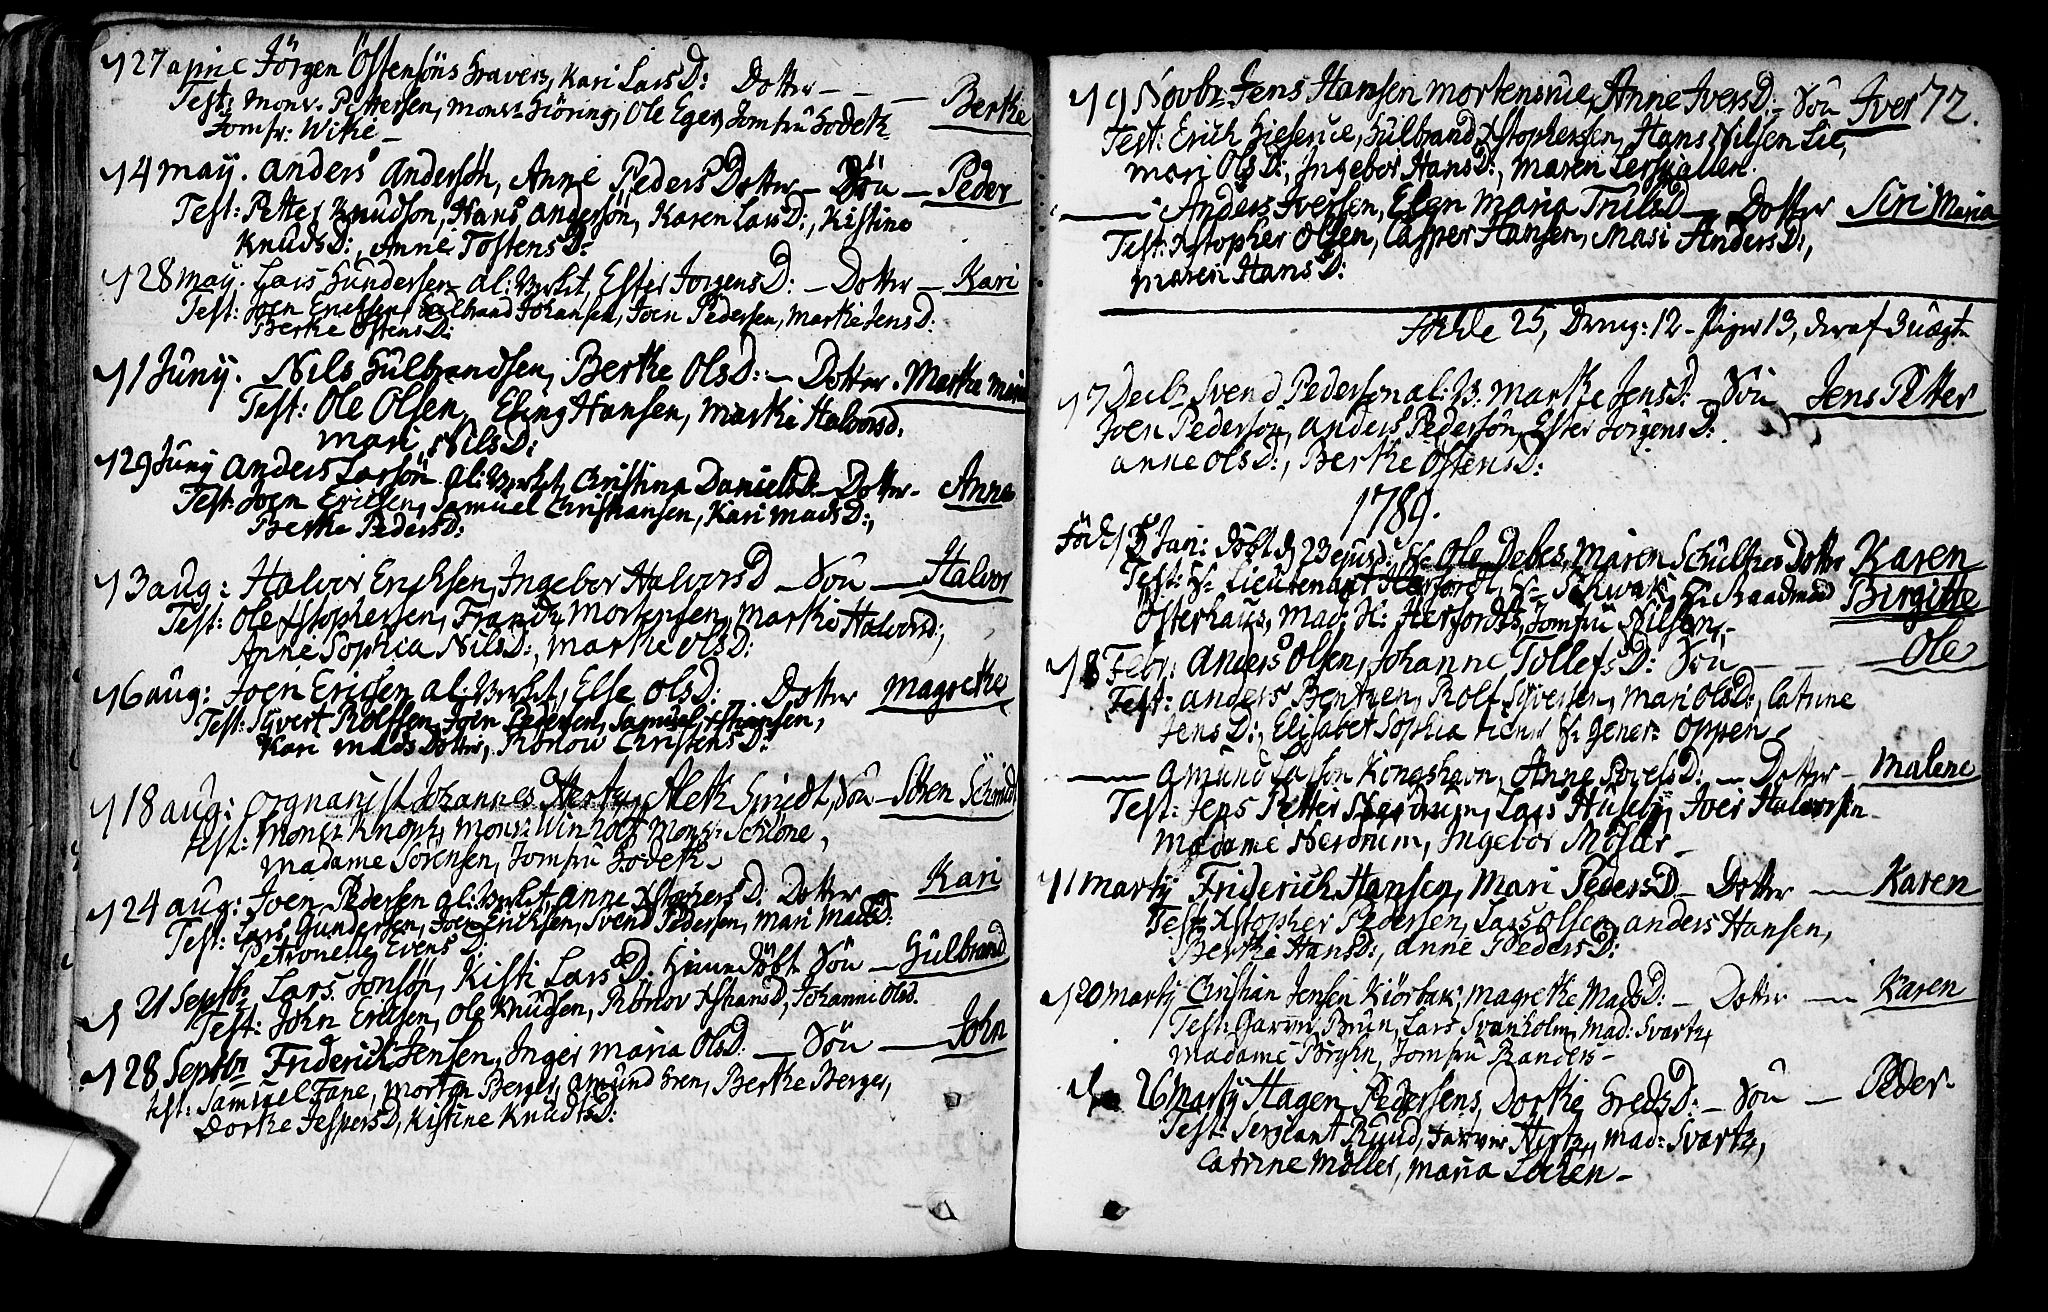 27 april Jörgen Östensöns Gravers, Kari LarsD: Dotter — Berthe
Test: Monsr. Pettersen, Monsr Giöring, Ole Eger, Jomfru Godetk
Jomfr: Wike —
4 may. Anders Andersön, Anne PedersDotter — Sön — Peder
Test: Petter Knudson, Hans Andersön, Karen LarsD:, Kistine
KnudsD:, Anne TostensD:
28 may. Lars Gundersen al: Verket, Ester JörgensD: — Dotter — Kari
Test: Joen Erichsen, Gulbrand Johansen, Joen Pedersen, Marthe JensD:
Berthe ÖstensD:
1 Juny. Nils Gulbrandsen, Berthe OlsD: — Dotter. Marthe Maria
Test: Ole Olsen, Eling Hansen, Marthe Halvorsd.
Mari NilsD:
29 Juny Anders Larsön al: Verket, Christina DanielsD: Dotter — Anne
Test: Joen Ericsen, Samuel Christiansen, Kari MadsD:,
Berthe PedersD:
3 aug: Halvor Erichsen, Ingebor HalvorsD — Sön — Halvor
Test: Ole Xstophersen, Frandz Mortensen, Marthe Halvorsd;
Anne Sophia NilsD:, Marthe OlsD:
6 aug: Joen Ericsen al: Verket, Else OlsD: Dotter Magrethe
Test: Syvert Rolfsen, Joen Pedersen, Samuel Xstiansen,
Kari MadsDotter, Rönou ChristensD:
18 aug: Orgnanist Johannes Stertz, Aleth Smidt, Sön — Sören Schmidt
test: Monsr Knoph, Monsr Winholt, Monsr Schiöne,
Madame Sörensen, Jomfru Godetk
24 aug: Joen Pedersen al: Verket, Anne XstophersD: Dotter — Kari
Test: Lars Gundersen, Joen Erichsen, Svend Pedersen, Mari MadsD:
Petronelle EvensD:
21 Septbr Lars Jonsön, Kisti LarsD: Hiemedöbt Sön — Gulbrand
Test: John Ericsen, Ole Knudsen, Rönlov XstiansD, Johanne Olsd.
28 Septbr Friderich Jensen, Inger Maria OlsD: — Sön — John
test: Samuel Fane, Morten Berger, Amund Gren, Berthe Berger,
Dorthe JespersD, Kistine KnudtsD:
72.
9 Novbr Jens Hansen Mortensrue, Anne IversD: Sön Iver
Test: Erich Gieserue, Gulbrand Xstophersen, Hans Nilsen Lie,
Mari OlsD:, Ingebor HansD:, Maren
— Anders Iversen, Elen Maria TruelsD — Dotter Siri Maria
Test: Xstopher Olsen, Casper Hansen, Masi AndersD:,
Maren HansD:
25, Dreng: 12 — Piger 13, deraf 3 uægte
7 Decbr Svend Pedersen al: V. Marthe JensD: Sön Jens Petter
Joen Pedersön, Anders Pedersön, Ester JörgensD:
Anne OlsD:, Berthe ÖstensD:
1789.
Föd d 5 Jan: döbt d 23 ejusd: Hr Ole Debes, Maren Schultses Dotter Karen
Test: Hr Lieutenant Herfordt, Hr Schwartz, Hr Raadmand Birgitte
Osterhaus, Mad: H: Herfordts, Jomfru Nilsen
8 Febr: Anders Olsen, Johanne TollefsD: Sön — Ole
Test: Anders Bentzen, Rolf Syversen, Mari OlsD:, Catrine
JensD:, Elisabet Sophia tiener Hr Gener: Oppen
— Amund Larson Kongshavn, Anne — Dotter — Malene
Test: Jens Petter Nerdrum, Lars Huseby, Iver Halvorsen
Madame Nerdrum, Ingebor
1 marty Friderich Hansen, Mari PedersD — Dotter — Karen
Test: Xstopher Pedersen, Lars Olsen, Anders Hansen,
Berthe HansD:, Anne PedersD:
20 marty Cristian Jensen Kiörbak, Magrethe MadsD: — Dotter — Karen
Test: Garver Brun, Lars Svanholm, Mad: Svartz,
Madame Birghn, Jomfru Randers —
26 marty Hagen Pedersens, Dorthe GredsD: — Sön — Peder
Test: Sergeant Ruud, Farver Hertz, Mad: Svartz,
Catrine Möller, Maria —